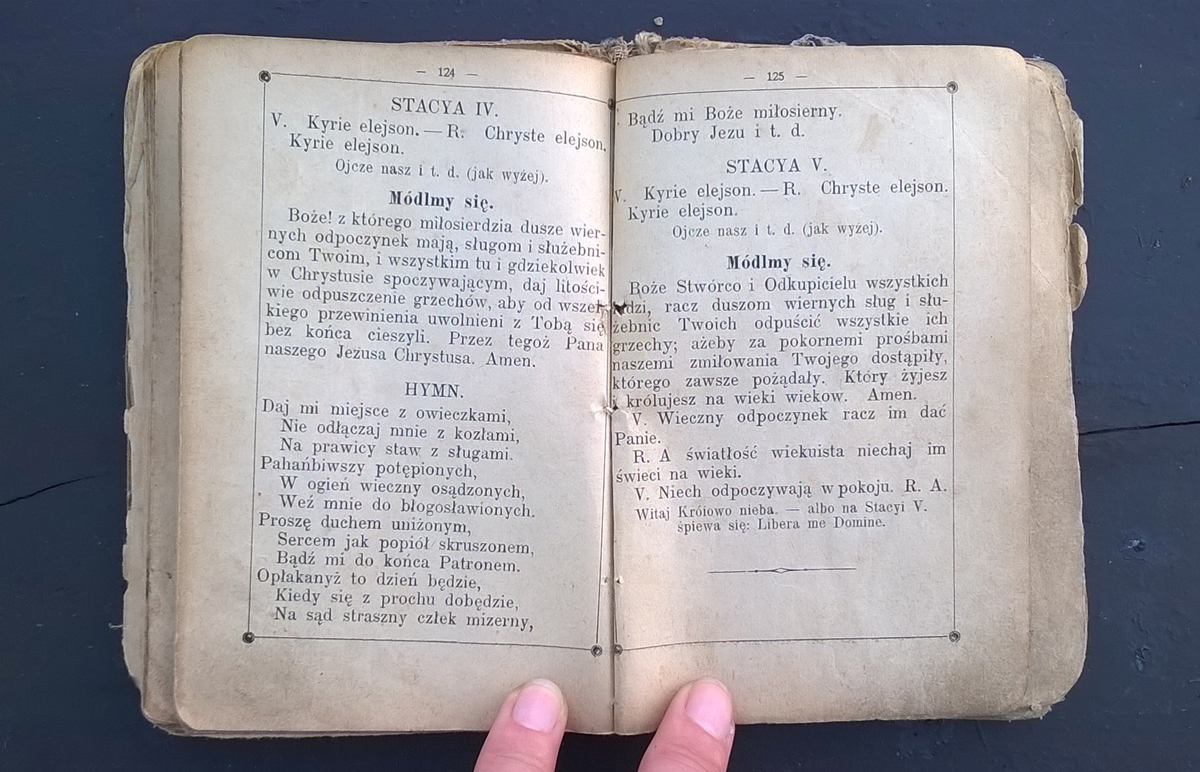 — 124 —
STACYA IV.
V. Kyrie elejson. — R. Chryste elejson.
Kyrie elejson.
Ojcze nasz i t. d. (jak wyżej).
Módlmy się.
Boże! z którego miłosierdzia dusze wier-
nych odpoczynek mają, sługom i służebni-
com Twoim, i wszystkim tu i gdziekolwiek
w Chrystusie spoczywającym, daj litości-
wie odpuszczenie grzechów, aby od wszel-
kiego przewinienia uwolnieni z Tobą się
bez końca cieszyli. Przez tegoż Pana
naszego Jezusa Chrystusa. Amen.
HYMN.
Daj mi miejsce z owieczkami,
Nie odłączaj mnie z kozłami,
Na prawicy staw z sługami.
Pahańbiwszy potępionych,
W ogień wieczny osądzonych,
Weź mnie do błogosławionych.
Proszę duchem uniżonym,
Sercem jak popiół skruszonem,
Bądź mi do końca Patronem.
Opłakanyż to dzień będzie,
Kiedy się z prochu dobędzie,
Na sąd straszny człek mizerny,
— 125 —
Bądź mi Boże miłosierny.
Dobry Jezu i t. d.
STACYA V.
V. Kyrie elejson. — R. Chryste elejson.
Kyrie elejson.
Ojcze nasz i t. d. (jak wyżej).
Módlmy się.
Boże Stwórco i Odkupicielu wszystkich
ludzi, racz duszom wiernych sług i słu-
żebnic Twoich odpuścić wszystkie ich
grzechy; ażeby za pokornemi prośbami
naszemi zmiłowania Twojego dostąpiły,
którego zawsze pożądały. Który żyjesz
i królujesz na wieki wiekow. Amen.
V. Wieczny odpoczynek racz im dać
Panie.
R. A światłość wiekuista niechaj im
świeci na wieki.
V. Niech odpoczywają w pokoju. R. A.
Witaj Królowo nieba. — albo na Stacyi V.
śpiewa się: Libera me Domine.